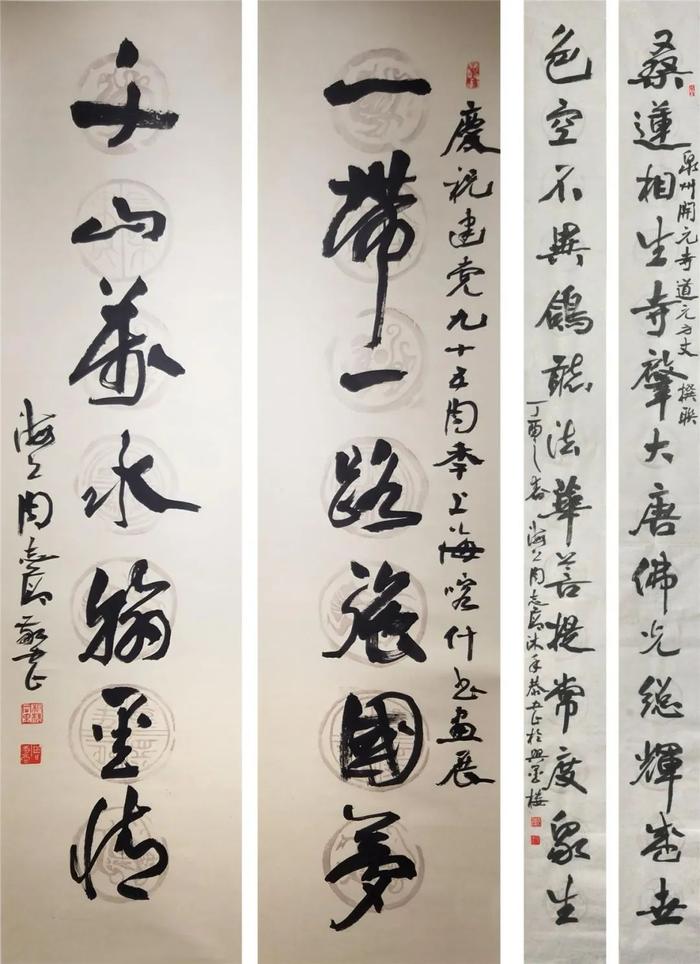 桑蓮相生寺肇大唐佛光總輝盛世
泉州開元寺道元方丈撰联
色空不異鴿聽法華菩提常度眾生
丁酉之春海上周志高沐手恭书於興墨樓
慶祝建党九十五周年上海喀什书畫展
一帶一路强國夢
千山萬水翰墨情
海上周志高敬书